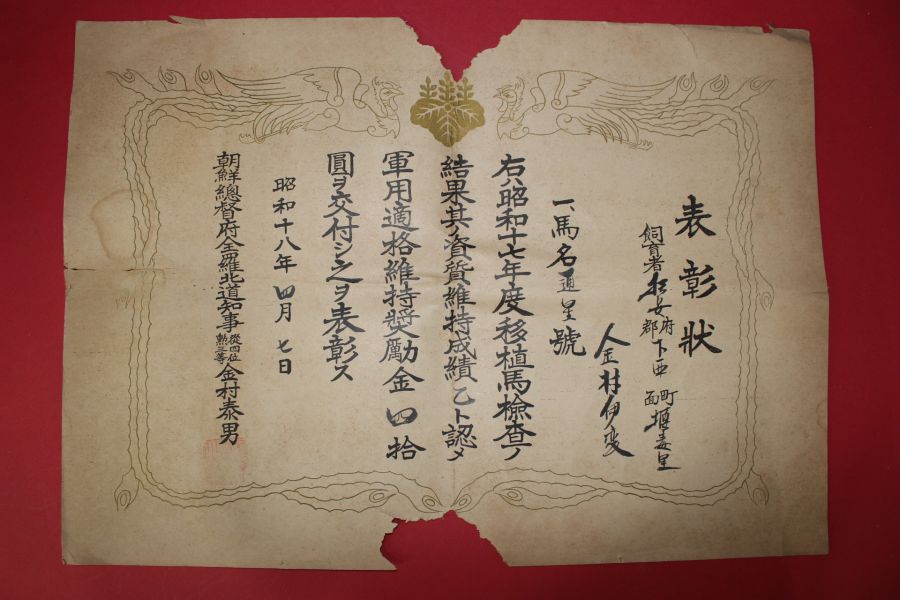 表彰状
飼育者 安府郡下西町面堰
人金村伊
一、馬名 通星號
右ハ昭和十七年度移植馬檢查ノ
結果其ノ資質維持成績乙ト認メ
軍用適格維持奬勵金四拾
圓ヲ交付シ之ヲ表彰ス
昭和十八年四月七日
朝鮮總督府全羅北道知事從四位勲三等金村泰男